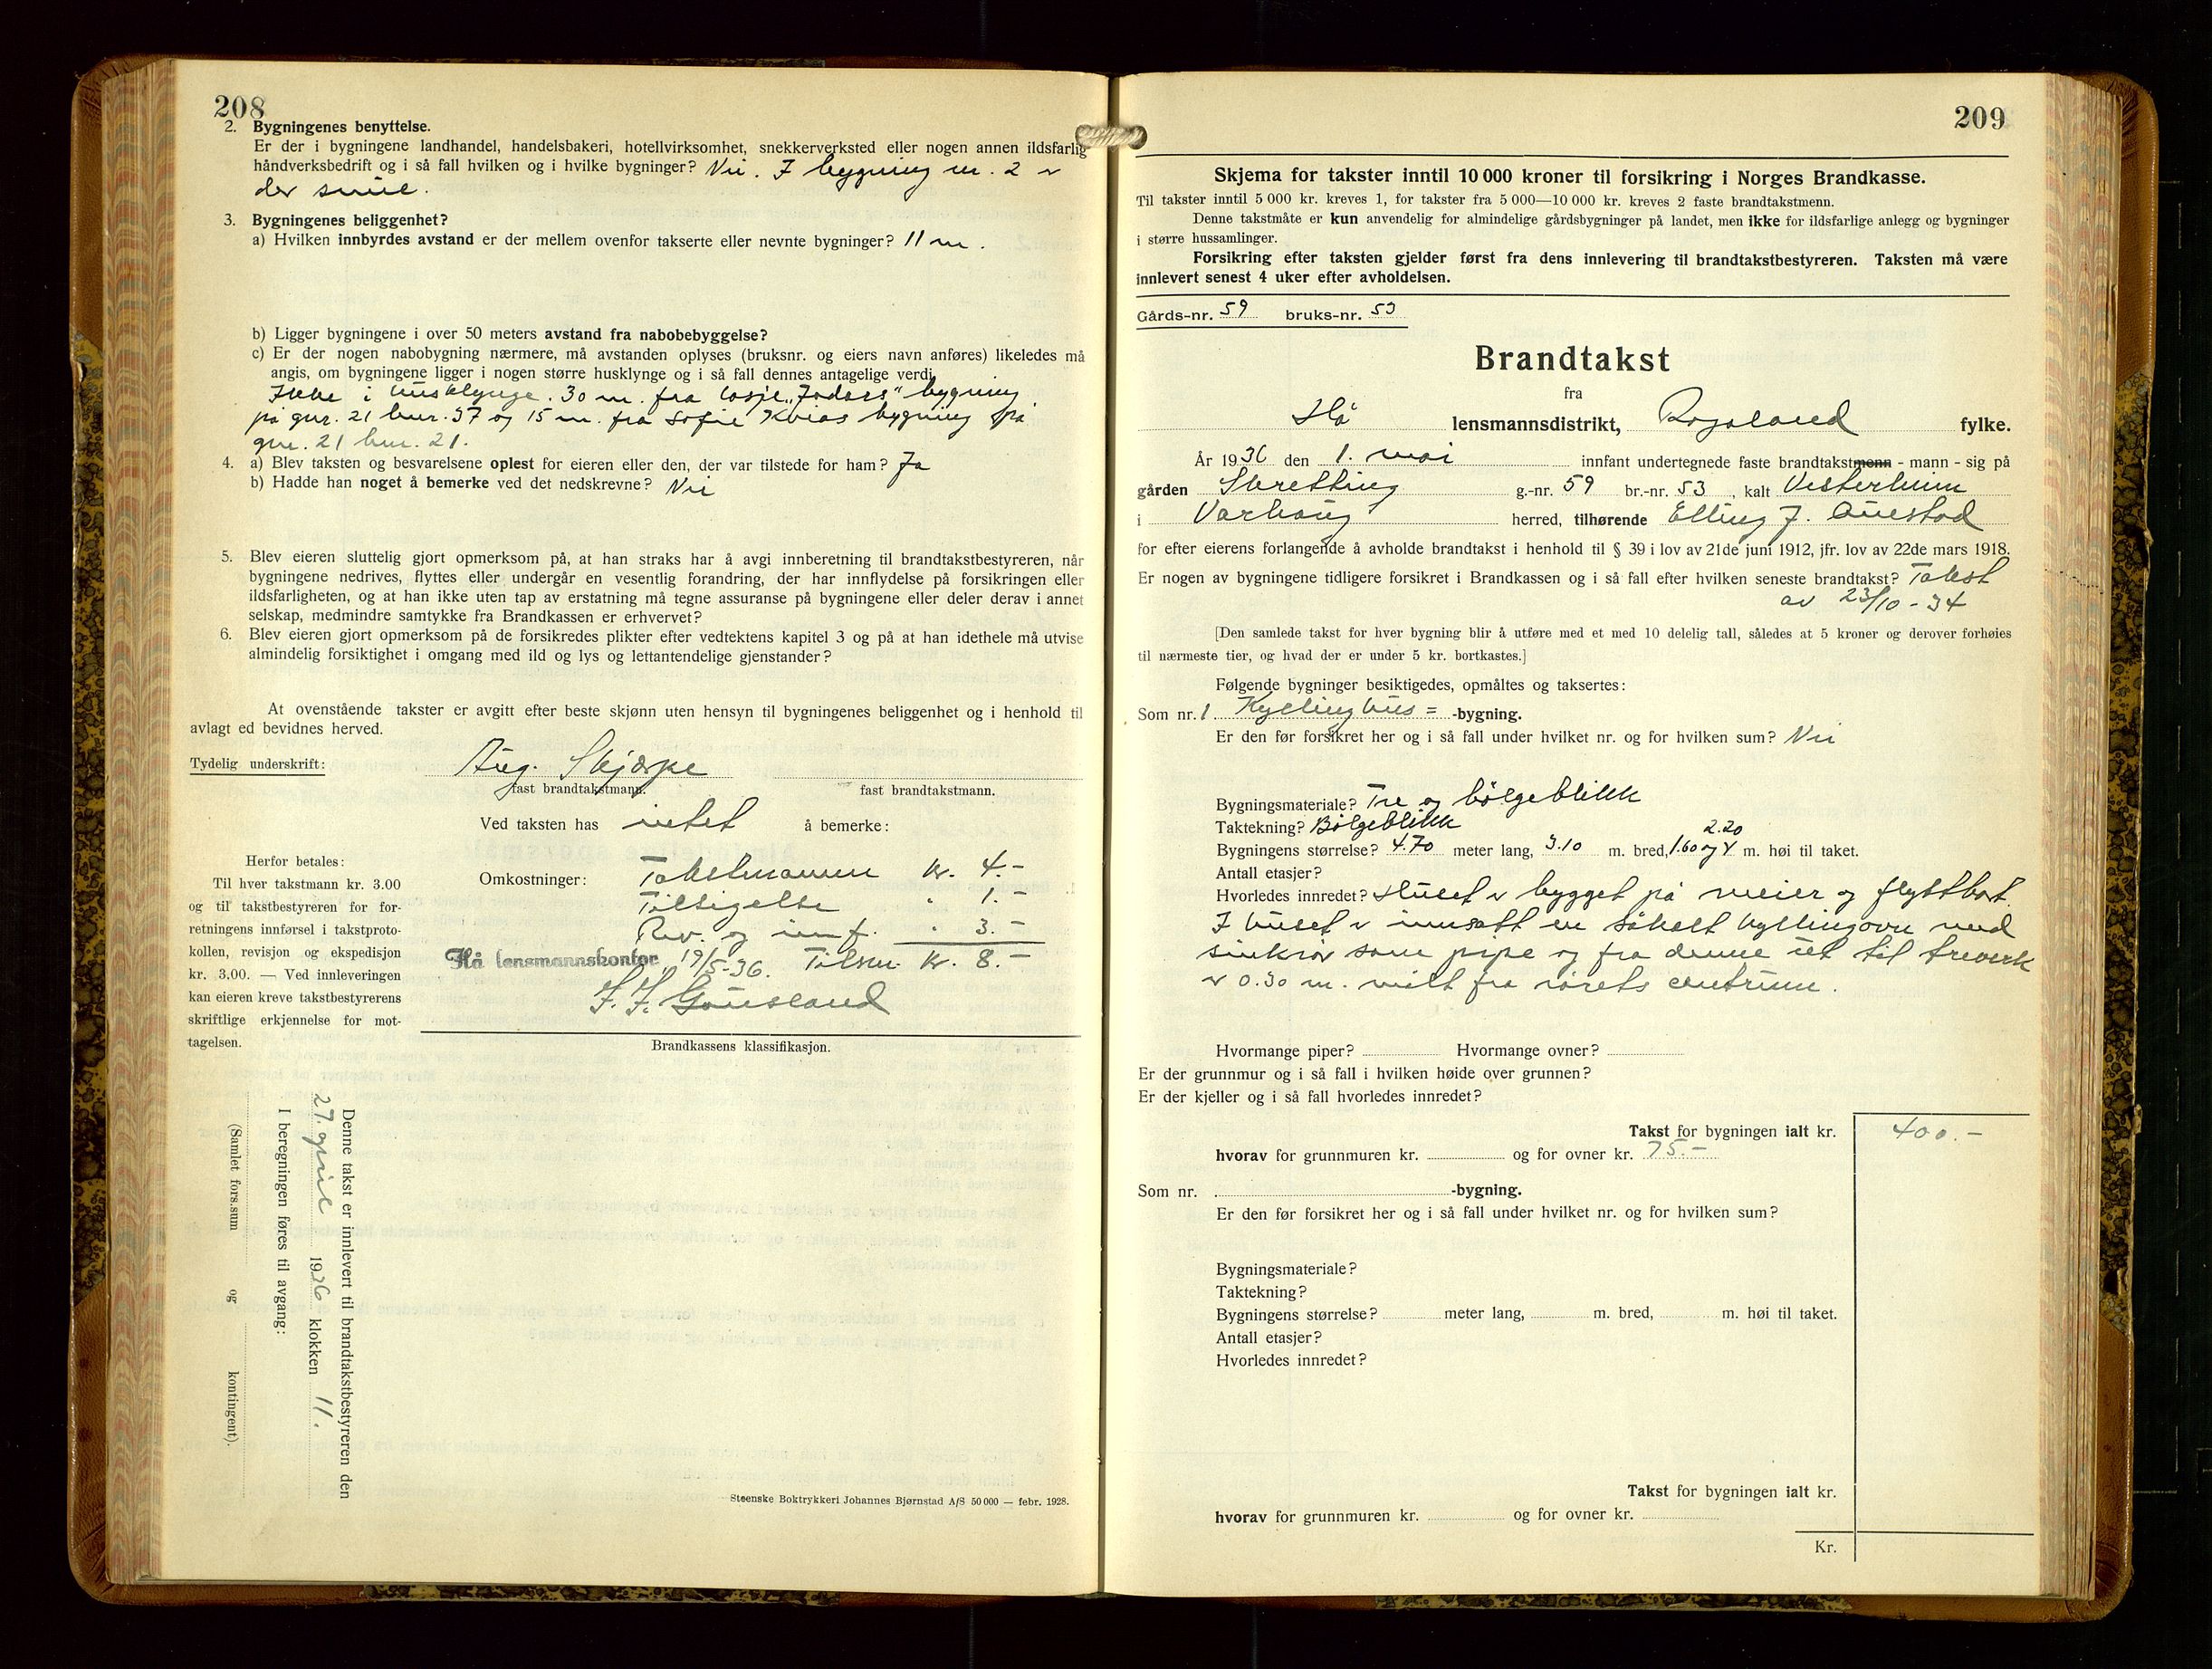 208
2. Bygningenes benyttelse.
Er der i bygningene landhandel, handelsbakeri, hotellvirksomhet, snekkerverksted eller nogen annen ildsfarlig
håndverksbedrift og i så fall hvilken og i hvilke bygninger? Nei. I bygning nr. 2 er
der smie.
3. Bygningenes beliggenhet?
a) Hvilken innbyrdes avstand er der mellem ovenfor takserte eller nevnte bygninger? 11 m.
b) Ligger bygningene i over 50 meters avstand fra nabobebyggelse?
c) Er der nogen nabobygning nærmere, må avstanden oplyses (bruksnr. og eiers navn anføres) likeledes må
angis, om bygningene ligger i nogen større husklynge og i så fall dennes antagelige verdi
Ikke i husklynge. 30 m. fra losje „Jadars" bygning
på gnr. 21 bnr. 37 og 15 m. fra Sofie Kvias bygning på
gnr. 21 bnr. 21.
4. a) Blev taksten og besvarelsene oplest for eieren eller den, der var tilstede for ham? Ja
b) Hadde han noget å bemerke ved det nedskrevne? Nei
5. Blev eieren sluttelig gjort opmerksom på, at han straks har å avgi innberetning til brandtakstbestyreren, når
bygningene nedrives, flyttes eller undergår en vesentlig forandring, der har innflydelse på forsikringen eller
ildsfarligheten, og at han ikke uten tap av erstatning må tegne assuranse på bygningene eller deler derav i annet
selskap, medmindre samtykke fra Brandkassen er erhvervet?
6. Blev eieren gjort opmerksom på de forsikredes plikter efter vedtektens kapitel 3 og på at han idethele må utvise
almindelig forsiktighet i omgang med ild og lys og lettantendelige gjenstander?
At ovenstående takster er avgitt efter beste skjønn uten hensyn til bygningenes beliggenhet og i henhold til
avlagt ed bevidnes herved.
Tydelig underskrift: Aug. Skjærpe
fast brandtakstmann. fast brandtakstmann.
Ved taksten has intet å bemerke:
Omkostninger: Takstmannen kr. 4.-
Tilsigelse " 1.-
Rev. og innf. " 3.-
Hå lensmannskontor 19/5-36. Tilsm. kr. 8.-
Gausland
Herfor betales:
Til hver takstmann kr. 3.00
og til takstbestyreren for for-
retningens innførsel i takstproto-
kollen, revisjon og ekspedisjon
kr. 3.00. — Ved innleveringen
kan eieren kreve takstbestyrerens
skriftlige erkjennelse for mot-
tagelsen.
Brandkassens klassifikasjon.
Denne takst er innlevert til brandtakstbestyreren den
27. april 1936 klokken 11.
I beregningen føres til avgang:
(Samlet fors.sum og kontingent).
Steenske Boktrykkeri Johannes Bjørnstad A/S 50 000 — febr. 1928.
209
Skjema for takster inntil 10 000 kroner til forsikring i Norges Brandkasse.
Til takster inntil 5 000 kr. kreves 1, for takster fra 5 000—10 000 kr. kreves 2 faste brandtakstmenn.
Denne takstmåte er kun anvendelig for almindelige gårdsbygninger på landet, men ikke for ildsfarlige anlegg og bygninger
i større hussamlinger.
Forsikring efter taksten gjelder først fra dens innlevering til brandtakstbestyreren. Taksten må være
innlevert senest 4 uker efter avholdelsen.
Gårds-nr. 59 bruks-nr. 53
Brandtakst
fra
Hå lensmannsdistrikt, Rogaland fylke.
År 1936 den 1. mai innfant undertegnede faste brandtakstmenn - mann - sig på
gården Skretting g.-nr. 59 br.-nr. 53, kalt Vesterheim
i Varhaug herred, tilhørende Elling J. Auestad
for efter eierens forlangende å avholde brandtakst i henhold til § 39 i lov av 21de juni 1912, jfr. lov av 22de mars 1918.
Er nogen av bygningene tidligere forsikret i Brandkassen og i så fall efter hvilken seneste brandtakst? Takst
av 23/10 - 34
[Den samlede takst for hver bygning blir å utføre med et med 10 delelig tall, således at 5 kroner og derover forhøies
til nærmeste tier, og hvad der er under 5 kr. bortkastes.]
Følgende bygninger besiktigedes, opmåltes og taksertes:
Som nr. 1 Kyllinghus= -bygning.
Er den før forsikret her og i så fall under hvilket nr. og for hvilken sum? Nei
Bygningsmateriale? Tre og bølgeblikk
Taktekning? Bølgeblikk
2.20
Bygningens størrelse? 4.70 meter lang, 3.10 m. bred, 1.60 og m. høi til taket.
Antall etasjer?
Hvorledes innredet? Huset er bygget på meier og flyttbart.
I huset er innsatt en såkalt kyllingovn med
sinkrør som pipe og fra denne ut til treverk
er 0.30 m. målt fra rørets centrum.
Hvormange piper? Hvormange ovner?
Er der grunnmur og i så fall i hvilken høide over grunnen?
Er der kjeller og i så fall hvorledes innredet?
Takst for bygningen ialt kr. 400.-
hvorav for grunnmuren kr. og for ovner kr. 75.-
Som nr. -bygning.
Er den før forsikret her og i så fall under hvilket nr. og for hvilken sum?
Bygningsmateriale?
Taktekning?
Bygningens størrelse? meter lang, m. bred, m. høi til taket.
Antall etasjer?
Hvorledes innredet?
Takst for bygningen ialt kr.
hvorav for grunnmuren kr. og for ovner kr.
Kr.